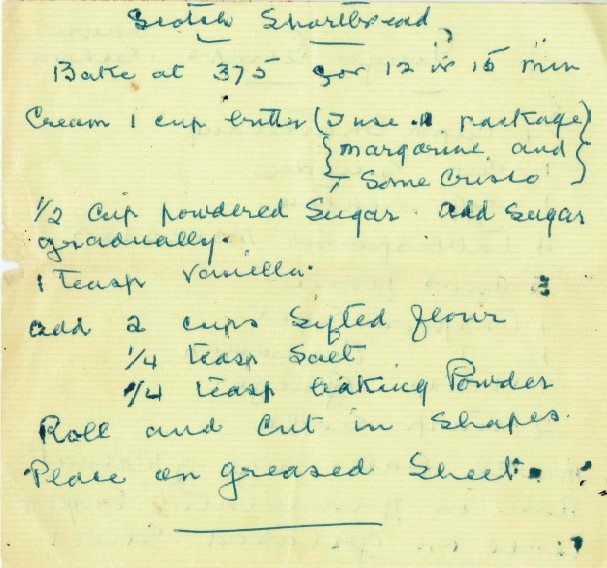 Scotch Shortbread
Bake at 375 for 12 or 15 min
Cream 1 cup butter (I use 1 package
margarine and
Some Crisco)
1/2 Cup powdered Sugar. add Sugar
gradually.
1 teasp vanilla.
add 2 cups Sifted flour
1/4 teasp Salt
1/4 teasp baking Powder
Roll and Cut in Shapes.
Place on greased Sheet.